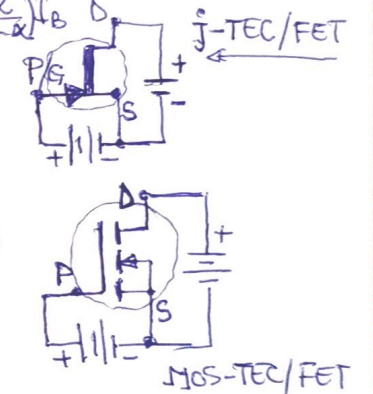 B D
j-TEC/FET
P/G
+
-
S
+ -
D
+
P
S
+ -
MOS-TEC/FET